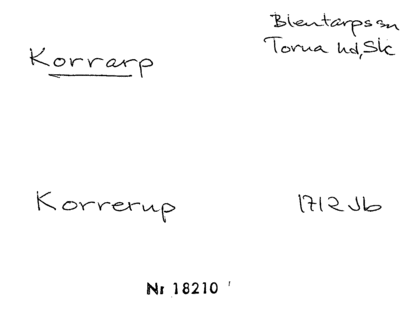 Blentarps sn
Torna hd, Sk
Korrarp
Korrerup 1712 Jb
Nr 18210